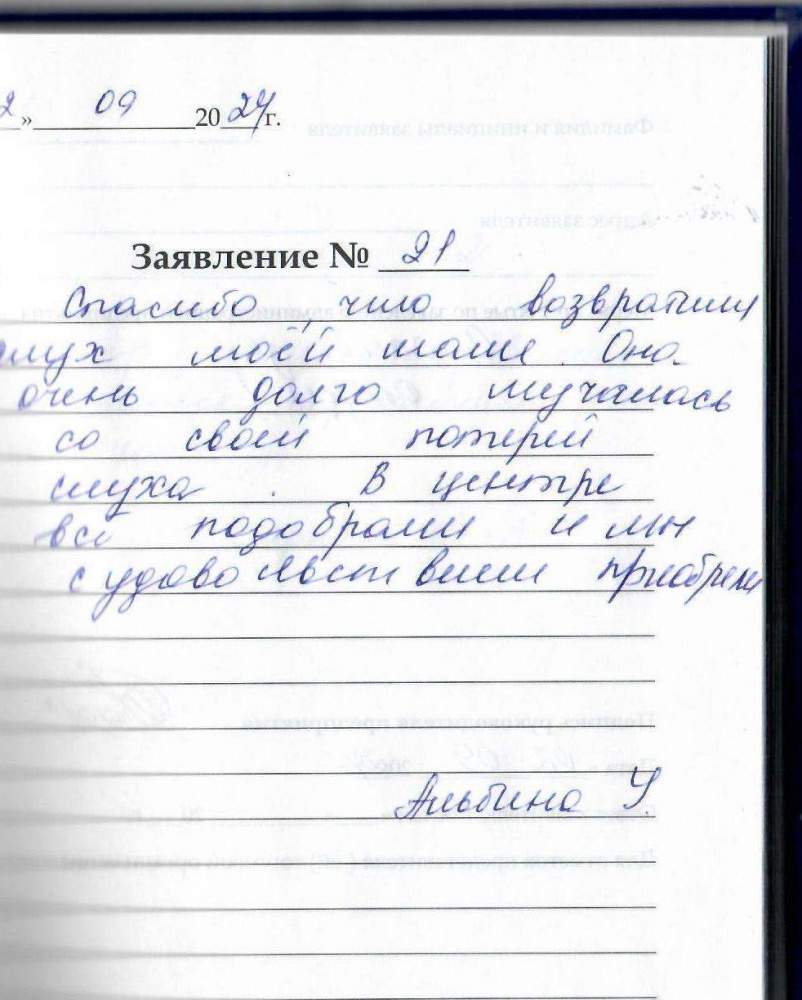 2» 09 2024г.
Заявление № 21
Спасибо, что возвратили
слух моей маме. Она
очень долго мучалась
со своей потерей
слуха. В центре
все подобрали и мы
с удовольствием приобрели
Альбина У